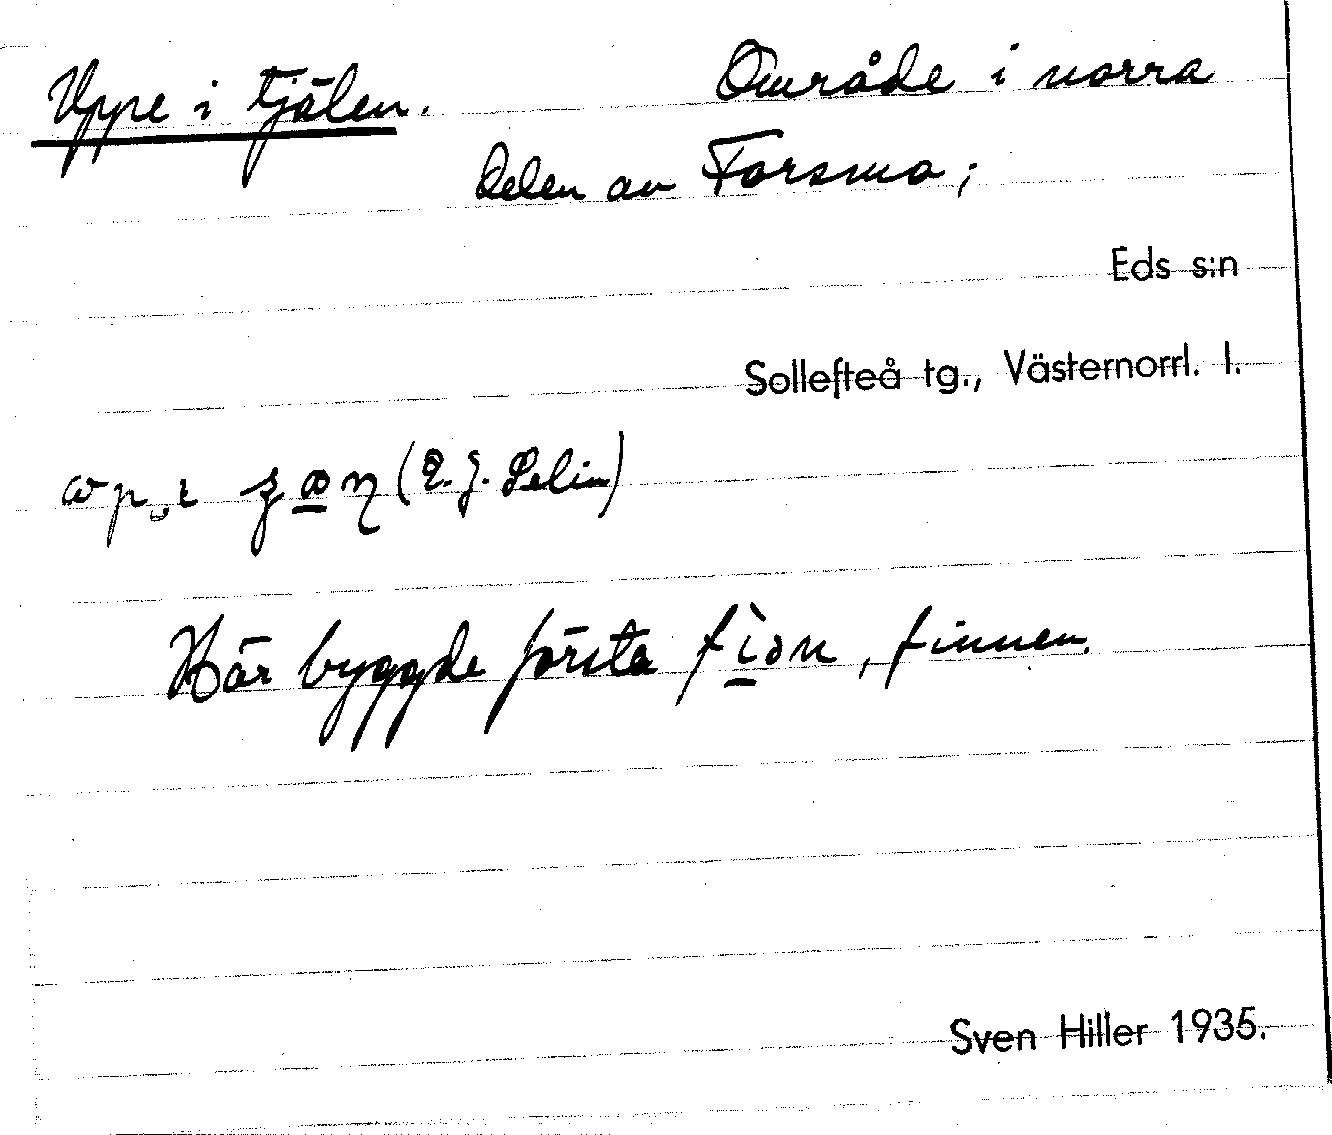 Uppe i tjälen. Område i norra
delen av Forsmo;
Eds s:n
Sollefteå tg., Västernorrl. l.
(E. J. Selin)
Här byggde första , finnen.
Sven Hiller 1935.